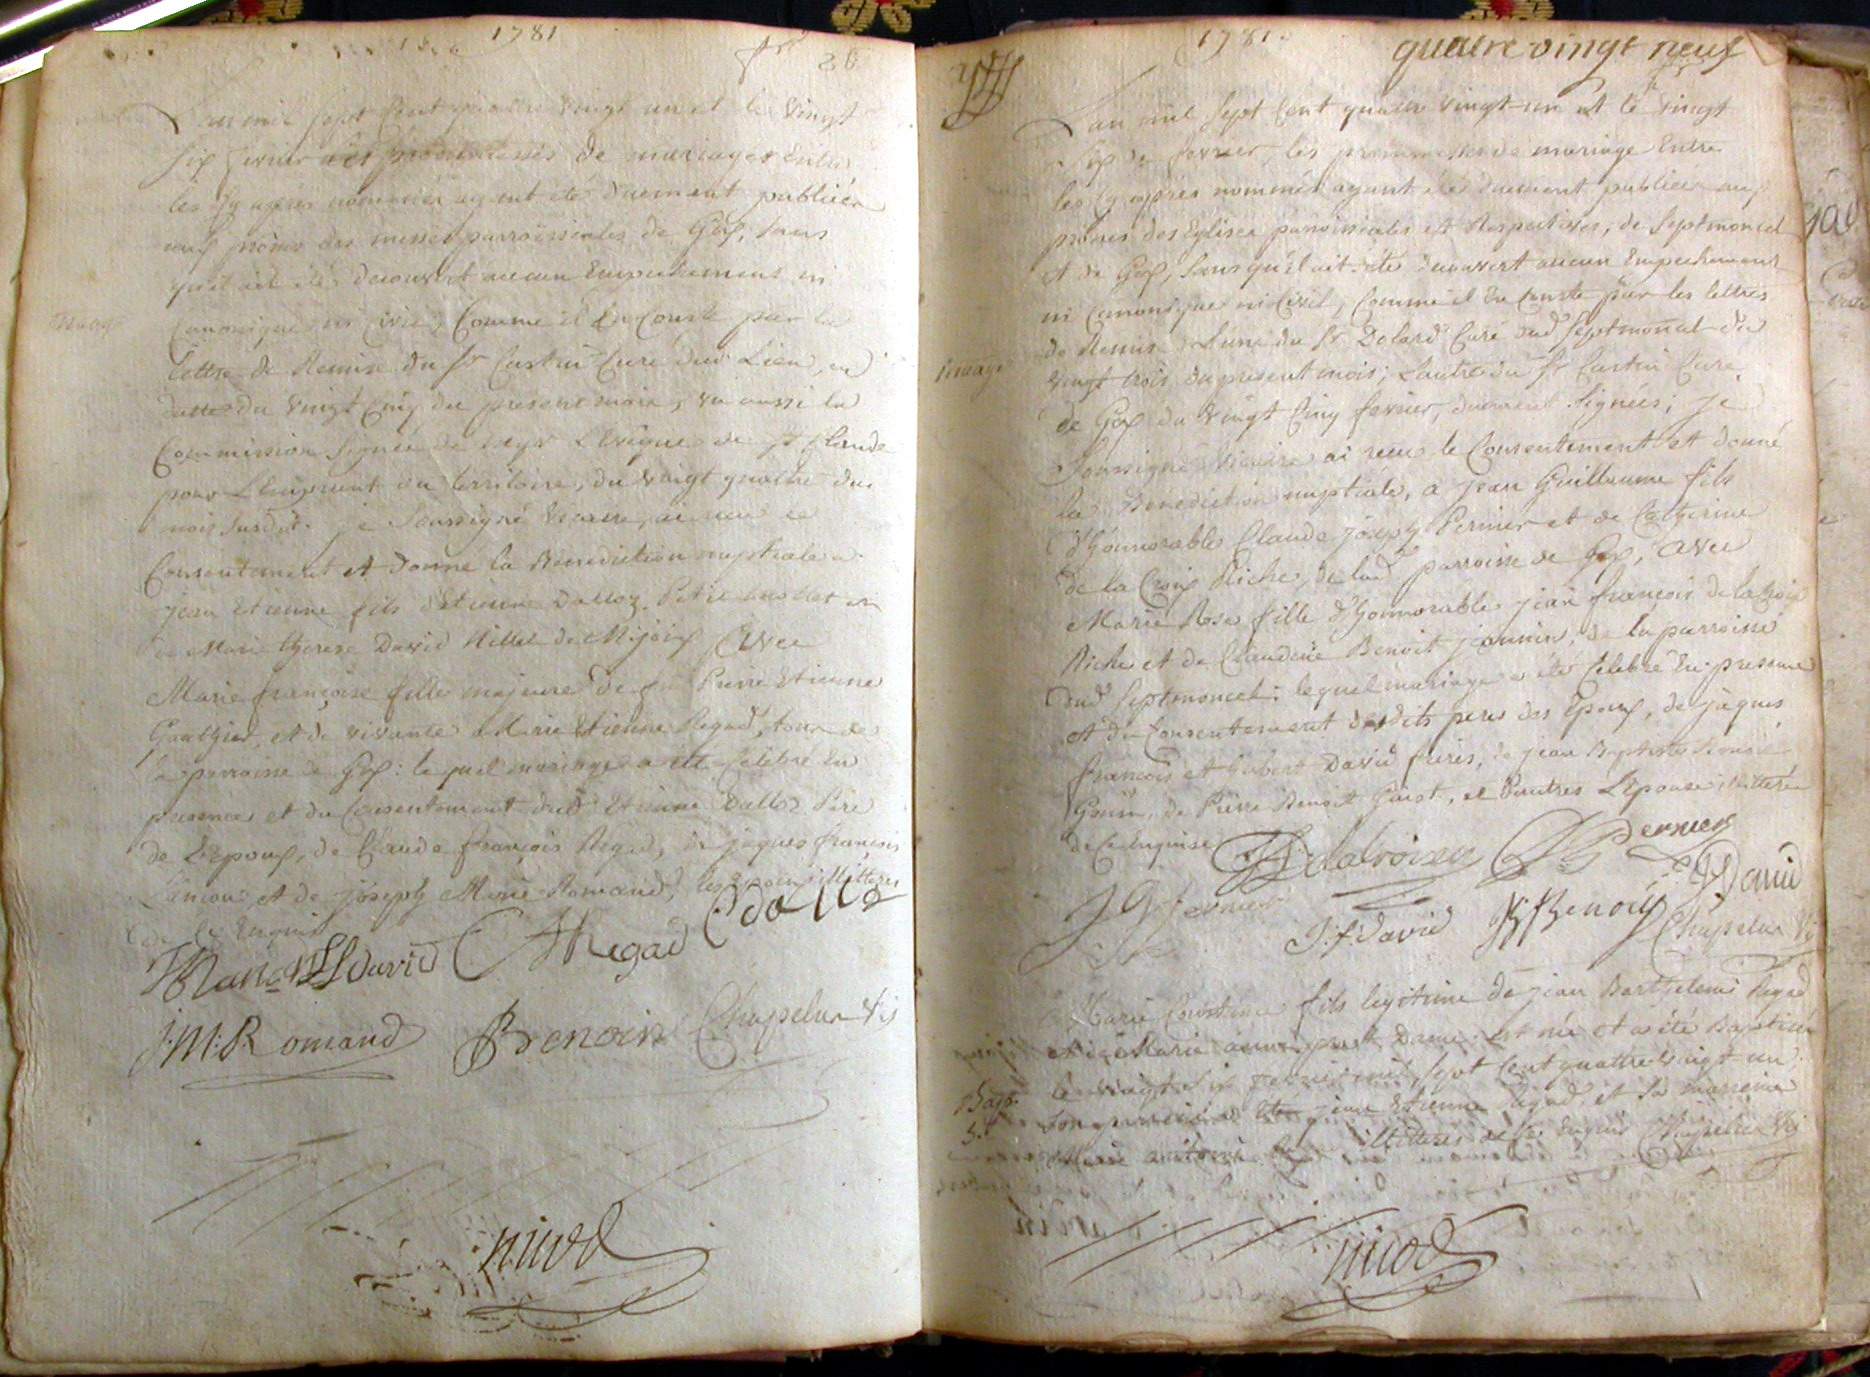 1781
L'an mil sept cent quatre vingt un et le vingt
six fevrier les promesses de mariages Entre
les cy après nommés ayant été duement publiées
aux prônes des messes parroissiales de Gex, sans
qu'il ait été decouvert aucun Empechement ni
Canonique, ni Civil, Comme il En Conste par la
lettre de Remise du Sr Castin Curé dud Lieu, en
datte du vingt Cinq du present mois, vu aussi la
Commission signée de Mgr L'Evêque de St Claude
pour L'Emprunt du territoire, du vingt quatre du
mois susdit. je soussigné Vicaire, ai recu le
Consentement et donné la Benediction nuptiale a
jean Etienne fils d'Etienne Dalloz Petit
de Marie therese David Millet de Mijoux Avec
Marie françoise fille majeure de fu Pierre Etienne
Gauthier, et de vivante Marie Etienne Regad, tous de
la parroisse de Gex : lequel mariage a été Célébré En
presence et du Consentement dudt Etienne Dalloz Père
de L'Epoux, de Claude françois Regad, de jaques françois
Lançon et de joseph Marie Romand, les Epoux illitterés
de ce Enquis
David C f Regad E dalloz
J:M:R omand Benoit Chapelu Vic
nicod
1781.
quatre vingt neuf
L'an mil sept Cent quatre vingt-un et le vingt
Six de fevrier, les promesses de mariage Entre
les cy après nommés ayant été duement publiées aux
prônes des Eglises parroissiales et Respectives, de Septmoncel
et de Gex, Sans qu'il ait été decouvert aucun Empechement
ni Canonique ni Civil, Comme il En Conste par les lettres
de Remis L'une du Sr Dolard Curé dud Septmoncel du
vingt trois du present mois ; L'autre du Sr Castin Curé
mariage
de Gex du vingt Cinq fevrier, duement Signées ; Je
Soussigné Vicaire ai recu le Consentement et donné
la Benediction nuptiale, a jean Guillaume fils
d'honnorable Claude joseph Pernier et de Catherine
de la Croix Riche, de lad parroisse de Gex, Avec
Marie Rose fille d'honnorable jean françois de la Croix
Riche et de Claudine Benoit jeannin, de la parroisse
dud Septmoncel ; lequel mariage a été Célébré En presence
et du Consentement desdits peres des Epoux, de jâques
françois et hubert David frères, de jean Baptiste
de Pierre Benoit Guiot, et d'autres L'Epouse illitterée
de Ce Enquise
Delacroix Pernier
J G Pernier J.f David Benoit J David
Chapelu Vic
Marie fils legitime de jean Barthelemi Regad
et de Marie Dame est née et a été Baptisée
le vingt Six fevrier mil sept Cent quatre vingt un
Bapt.
Son parrain a été jean Etienne Regad et Sa marreine
Marie illitterés de Ce Enquis Chapelu Vic
nicod